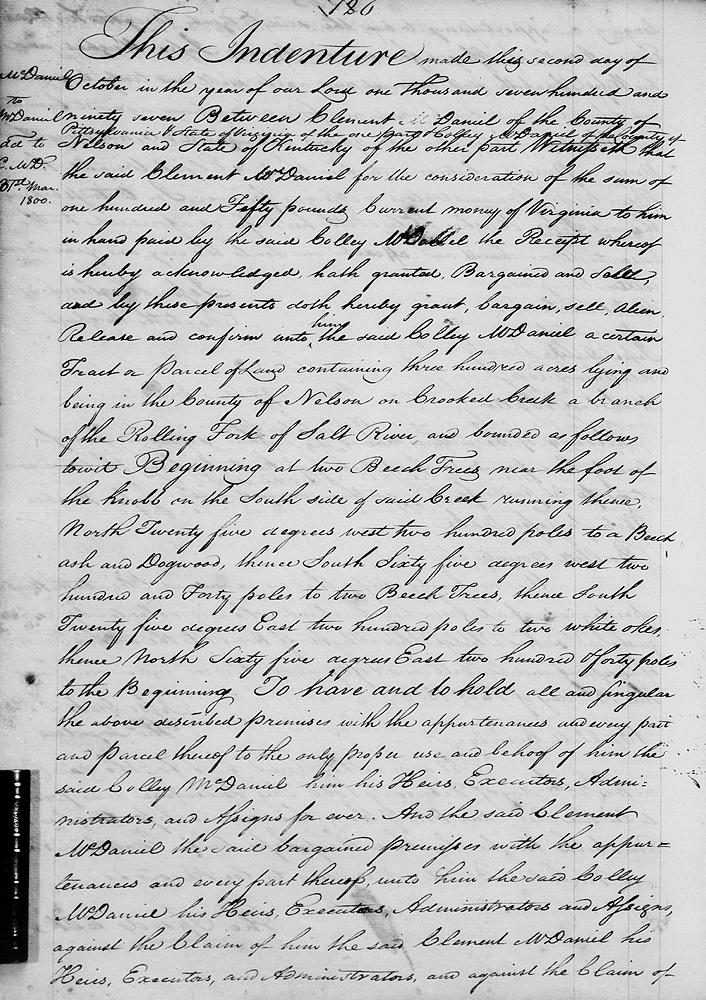 180
This Indenture made this second day of
McDaniel
October in the year of our Lord one Thousand seven hundred and
to
McDaniel
ninety seven Between Clement McDaniel of the County of
Pittsylvania & State of Virginia of the one part & Colley McDaniel of the County of
dd to
Nelson and State of Kentucky of the other part Witnesseth that
C. McD.
the said Clement McDaniel for the consideration of the sum of
31st Mar.
1800.
one hundred and Fifty pounds Current money of Virginia to him
in hand paid by the said Colley McDaniel the Receipt whereof
is hereby acknowledged, hath granted, Bargained and Sold,
and by these presents doth hereby grant, bargain, sell, alien,
Release and confirm unto him the said Colley McDaniel a certain
Tract or parcel of Land containing three hundred acres lying and
being in the County of Nelson on Crooked Creek a branch
of the Rolling Fork of Salt River, and bounded as follows
towit Beginning at two Beech Trees near the foot of
the Knobb on the South side of said Creek running thence,
North Twenty five degrees west two hundred poles to a Beech
ash and Dogwood, thence South Sixty five degrees west two
hundred and Forty poles to two Beech Trees, thence South
Twenty five degrees East two hundred poles to two white okes,
thence North Sixty five degrees East two hundred & forty poles
to the Beginning. To have and to hold all and singular
the above discribed premises with the appurtenances and every part
and parcel thereof to the only proper use and behoof of him the
said Colley McDaniel him his Heirs, Executors, Admi-
nistrators, and Assigns for ever. And the said Clement
McDaniel the said bargained premisses with the appur=
tenances and every part thereof, unto him the said Colley
McDaniel his Heirs, Executors, Administrators and Assigns,
against the Claim of him the said Clement McDaniel his
Heirs, Executors, and Administrators, and against the Claim of